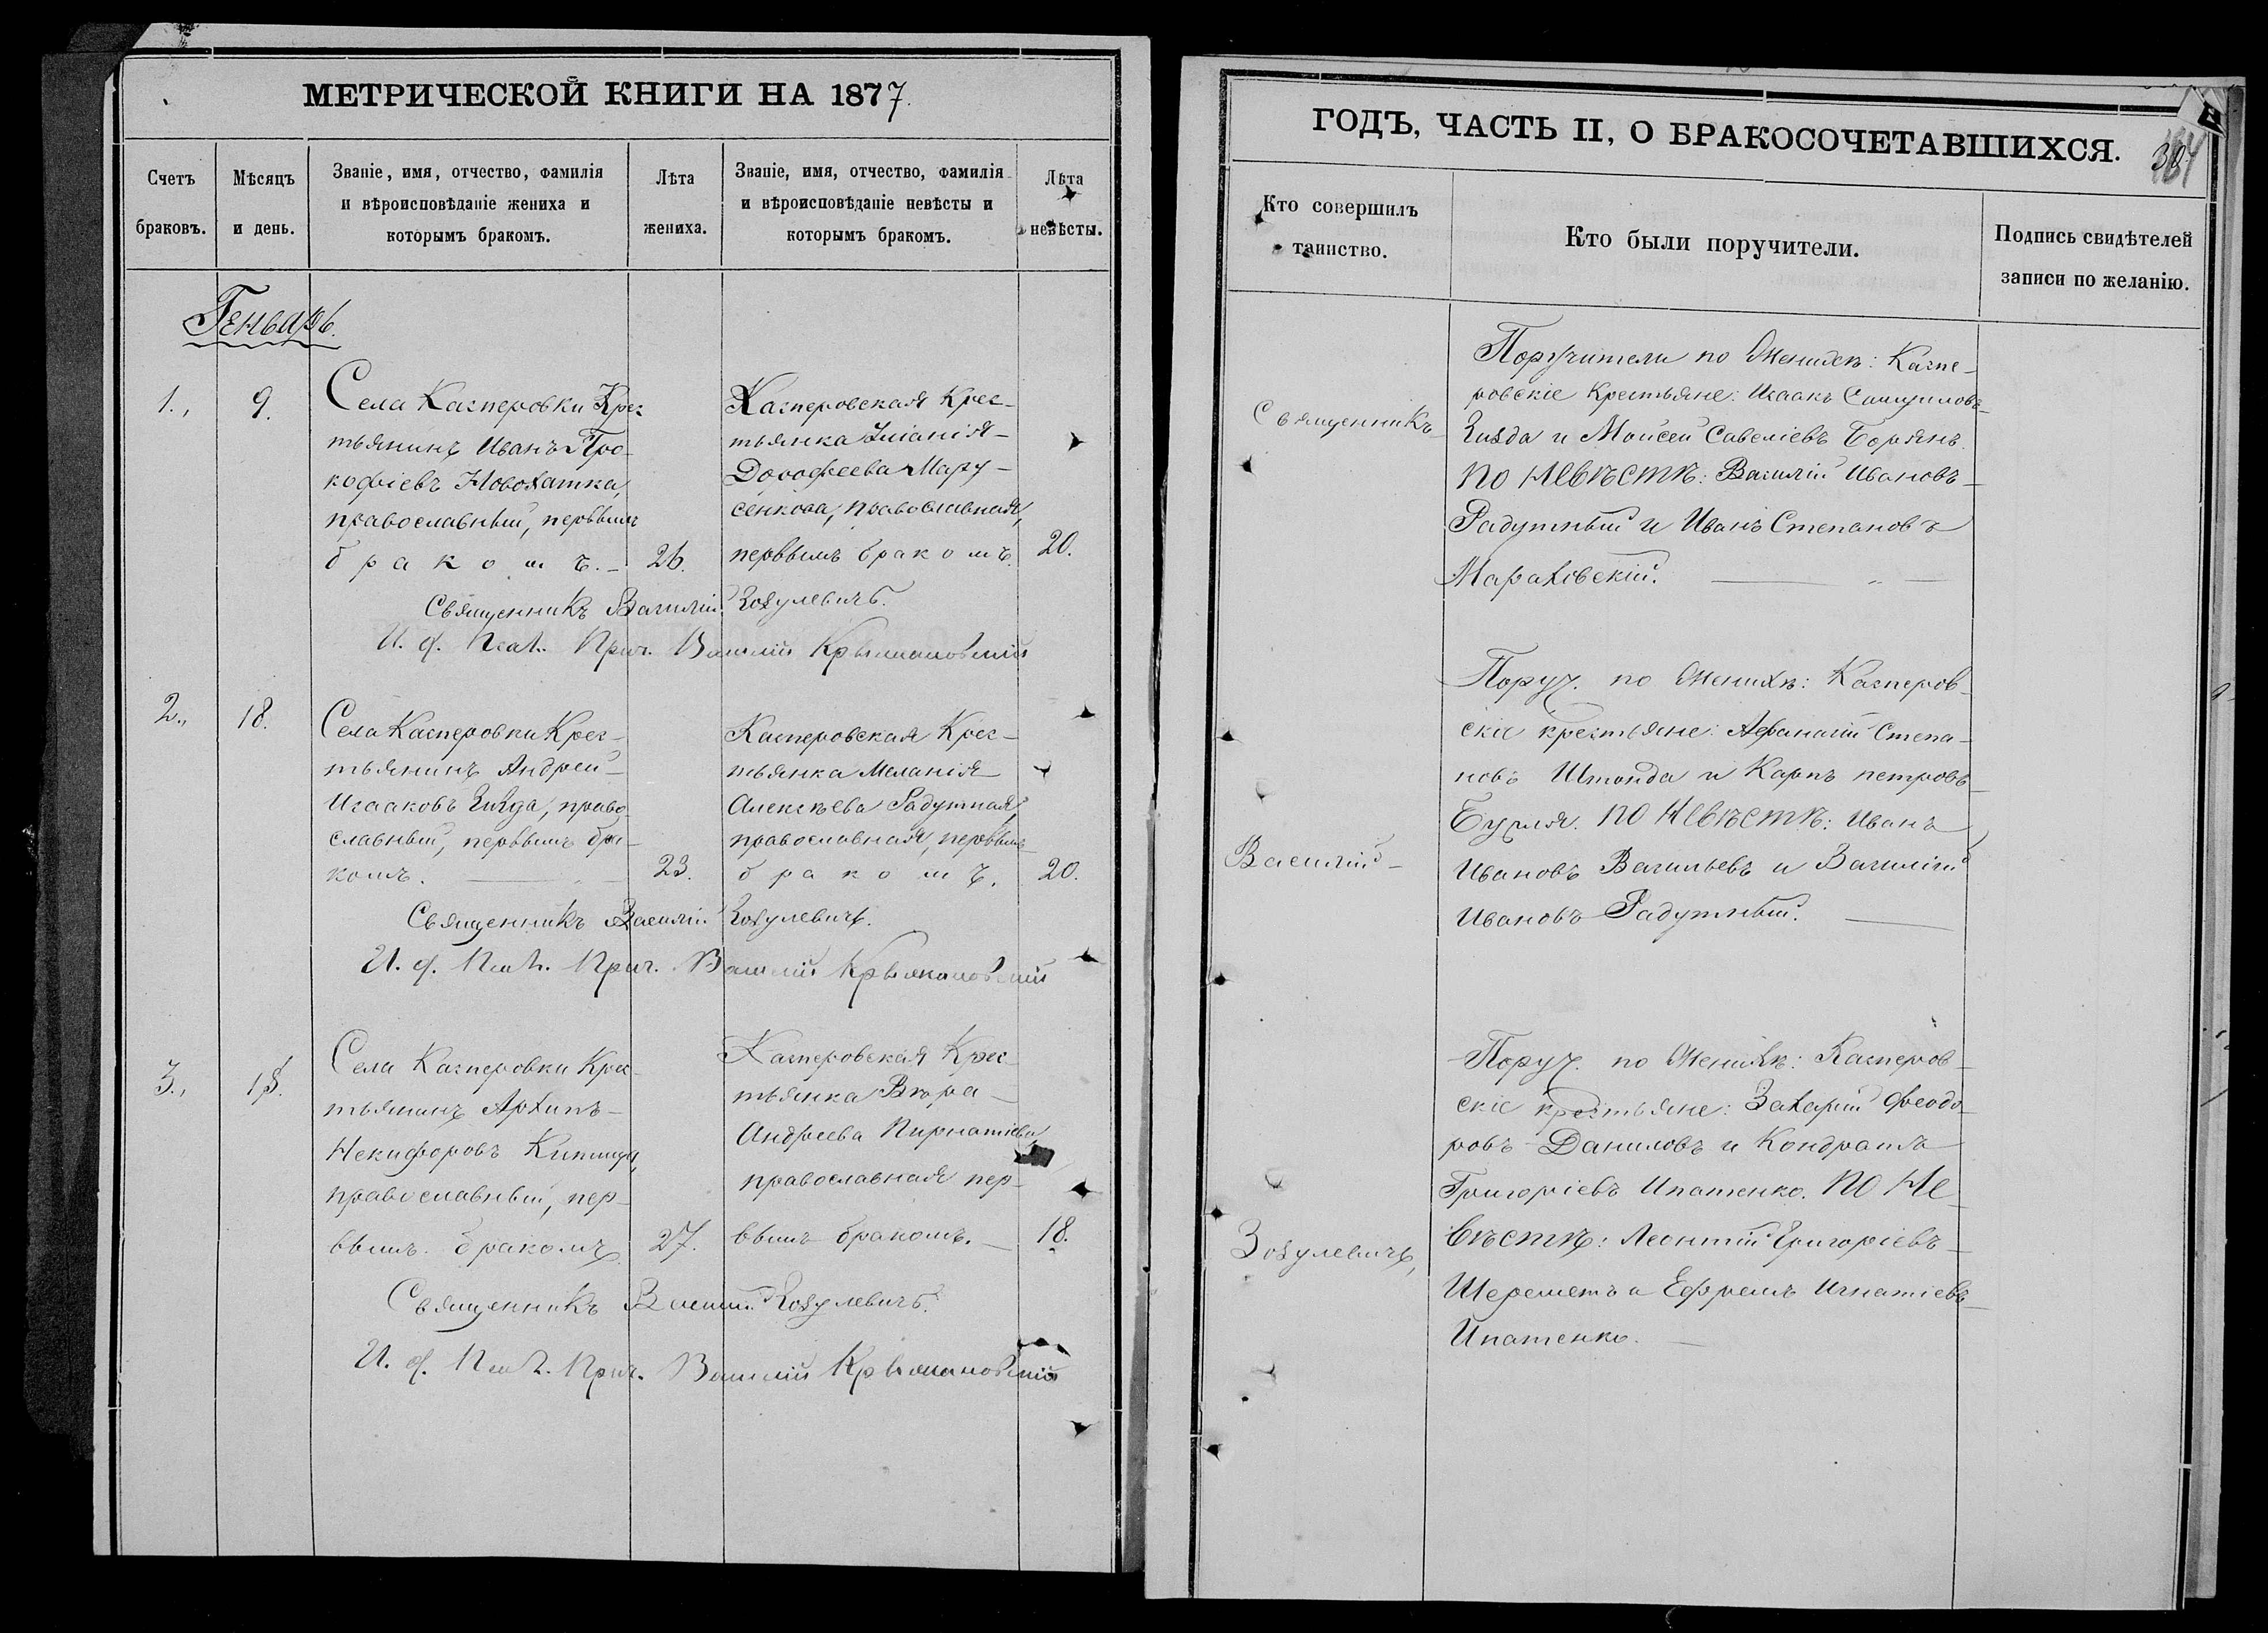 МЕТРИЧЕСКОЙ КНИГИ НА 1877.
Счетъ браковъ.
Мѣсяцъ и день.
Званіе, имя, отчество, фамилія
и вѣроисповѣданіе жениха и
которымъ бракомъ.
Лѣта жениха.
Званіе, имя, отчество, фамилія
и вѣроисповѣданіе невѣсты и
которымъ бракомъ.
Лѣта невѣсты.
Генварь.
1., 9.
Села Касперовки Крес
тьянинъ Иванъ Про-
кофіевъ Новохатка,
православный, первымъ
бракомъ. – 26.
Касперовская Крес-
тьянка
Дорофеева Мару-
сенкова, православная,
первымъ бракомъ. 20.
Священникъ Василій Зозулевичъ.
И. д. Псал. Прич. Василій
2., 18.
Села Касперовки Крес-
тьянинъ Андрей
Исааковъ право
славный, первымъ бра-
комъ. 23.
Касперовская Крес-
тьянка Меланія
Алексѣева Радутная,
православная, первымъ
бракомъ. 20.
Священникъ Василій Зозулевичъ.
И. д. Псал. Прич. Василій
3., 18.
Села Касперовки Крес-
тьянинъ Архипъ
Никифоровъ
православный, пер-
вымъ бракомъ 27.
Касперовская Крес-
тьянка Вѣра
Андреева
православная пер-
вымъ бракомъ. 18.
Священникъ Василій Зозулевичъ.
И. д. Псал. Прич. Василій
ГОДЪ, ЧАСТЬ II, О БРАКОСОЧЕТАВШИХСЯ.
Кто совершилъ
таинство.
Кто были поручители.
Подпись свидѣтелей
записи по желанію.
Священникъ
Василій
Зозулевичъ,
Поручители по Женихѣ: Каспе-
ровскіе Крестьяне: Исаакъ Самуиловъ
и Моисей Савеліевъ
По Невѣстѣ: Василій Ивановъ
Радутный и Иванъ Степановъ
Мараховскій.
Поруч. по Женихѣ: Касперов-
скіе крестьяне: Афанасій Степа-
новъ и Карпъ петровъ
По Невѣстѣ: Иванъ
Ивановъ Васильевъ и Василій
Ивановъ Радутный.
Поруч. по Женихѣ: Касперов-
скіе крестьяне: Захарій Феодо-
ровъ Даниловъ и Кондратъ
Григоріевъ Ипатенко. По Не
вѣстѣ: Леонтій Григоріевъ
Шереметъ и Ефремъ Игнатіевъ
Ипатенко.